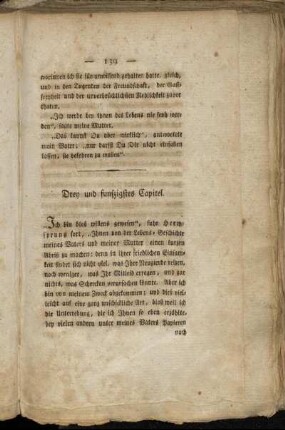 — 139 —
welchen ich sie für unwissend gehalten hatte, gleich,
und in den Tugenden der Freundschaft, der Gast-
freyheit und der unverbrüchlichsten Redlichkeit zuvor
thaten.
„Ich werde den ihnen das Lebens nie feind wer-
den", sagte meine Mutter.
„Das kannst Du aber wirklich", antwortete
mein Vater; „nur darfst Du Dir nicht einfallen
lassen, sie bekehren zu wollen".
Drey und funfzigstes Capitel.
„Ich bin dies willens gewesen", fuhr Herm-
sprong fort, „Ihnen von der Lebens-Geschichte
meines Vaters und meiner Mutter einen kurzen
Abriß zu machen; denn in ihrer friedlichen Einsam-
keit findet sich nicht viel, was Ihre Neugierde reizen,
noch weniger, was Ihr Mitleid erregen, und gar
nichts, was Schrecken verursachen könnte. Aber ich
bin von meinem Zweck abgekommen; und dies viel-
leicht auf eine ganz unschickliche Art, dieß weil ich
die Unterredung, die ich Ihnen so eben erzählte,
bey vielen andern unter meines Vaters Papieren
nach